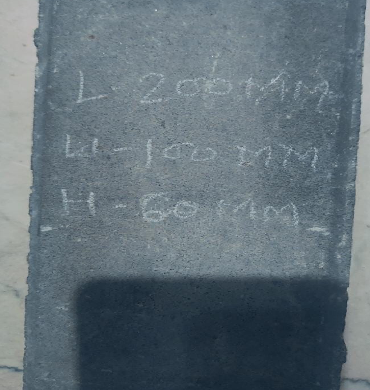 L - 200 MM
W - 100 MM
H - 60 MM